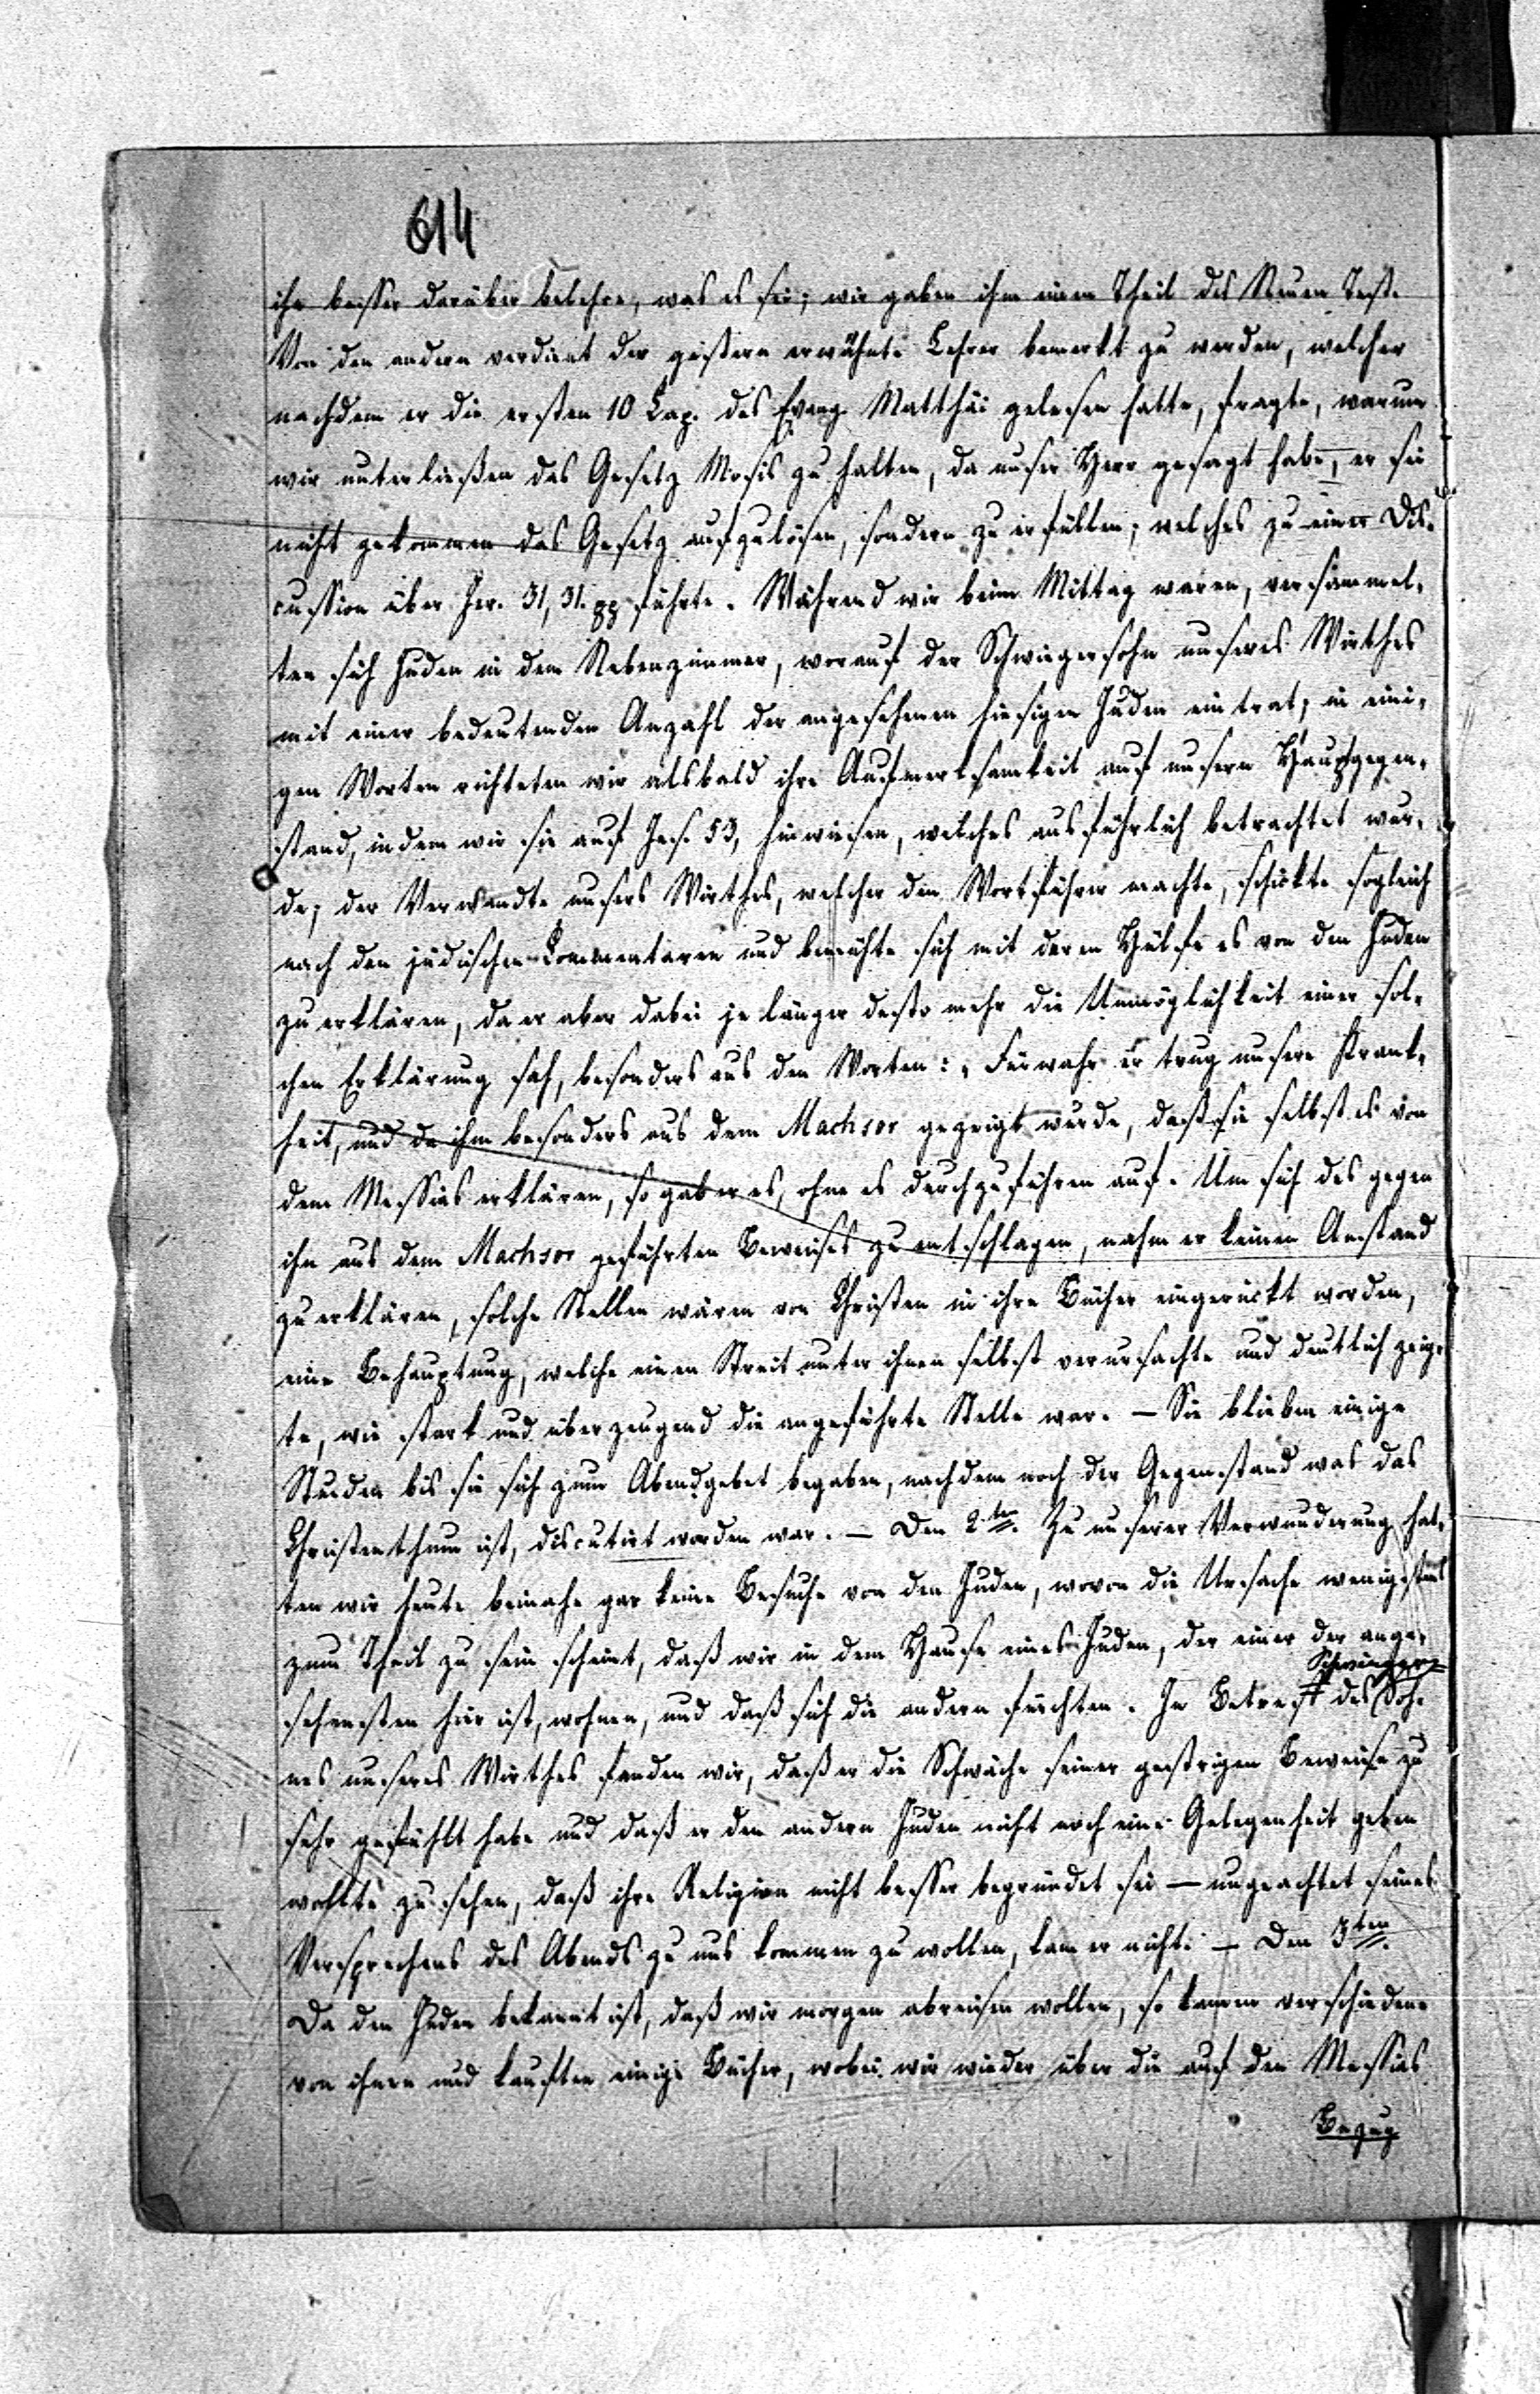 614
ihr besser darüber belehre, was es sei; wir gaben ihm einen Theil des Neuen Test.
Von den andern verdient der gestern erwähnte Lehrer bemerkt zu werden, welcher
nachdem er die ersten 10 Cap. des Evang. Matthäi gelesen hatte, fragte, warum
wir unterließen das Gesetz Mosis zu halten, da unser Herr gesagt habe, er sei
nicht gekommen das Gesetz aufzulösen, sondern zu erfüllen; welches zu einer Dis-
cussion über Jer. 31, 31. führte. Während wir beim Mittag waren, versammel-
ten sich Juden in dem Nebenzimmer, worauf der Schwiegersohn unseres Wirthes
mit einer bedeutenden Anzahl der angesehenen hiesigen Juden eintrat; in eini-
gen Worten richteten wir alsbald ihre Aufmerksamkeit auf unsern Hauptgegen-
stand, indem wir sie auf Jes. 53, hinwiesen, welches ausführlich betrachtet wur-
de; der Verwandte unsers Wirthes, welcher den Wortführer machte, schickte sogleich
nach den jüdischen Commentaren und bemühte sich mit deren Hülfe es von den Juden
zu erklären, da er aber dabei je länger desto mehr die Unmöglichkeit einer sol-
chen Erklärung sah, besonders aus den Worten: „Fürwahr er trug unsere Krank-
heit, und da ihm besonders aus dem Machsor gezeigt wurde, daß sie selbst es von
dem Messias erklären, so gab er es, ohne es durchzuführen auf. Um sich des gegen
ihn aus dem Machsor geführten Beweises zu entschlagen, nahm er keinen Anstand
zu erklären, solche Stellen wären von Christen in ihre Bücher eingerückt worden,
eine Behauptung, welche einen Streit unter ihnen selbst verursachte und deutlich zeig-
te, wie stark und überzeugend die angeführte Stelle war. — Sie blieben einige
Stunden bis sie sich zum Abendgebet begaben, nachdem noch der Gegenstand was das
Christenthum ist, discutirt worden war. — Den 2ten. Zu unserer Verwunderung hat-
ten wir heute beinahe gar keine Besuche von den Juden, wovon die Ursache wenigstens
zum Theil zu sein scheint, daß wir in dem Hause eines Juden, der einer der ange-
sehensten hier ist, wohnen, und daß sich die andern fürchten. In Betreff des Schwieger-Soh-
nes unseres Wirthes fanden wir, daß er die Schwäche seiner gestrigen Beweise zu
sehr gefühlt habe und daß er den andern Juden nicht noch eine Gelegenheit geben
wollte zu sehen, daß ihre Religion nicht besser begründet sei — ungeachtet seines
Versprechens des Abends zu uns kommen zu wollen, kam er nicht. — Den 3ten.
Da den Juden bekannt ist, daß wir morgen abreisen wollen, so kamen verschiedene
von ihnen und kauften einige Bücher, wobei wir wieder über die auf den Messias
Bezug